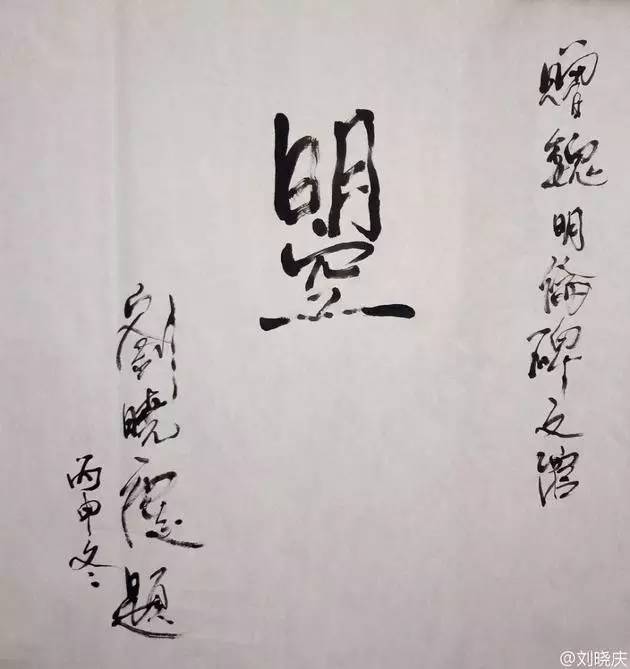 贈魏明倫碑文館
曌
劉曉慶題
丙申冬
@刘晓庆